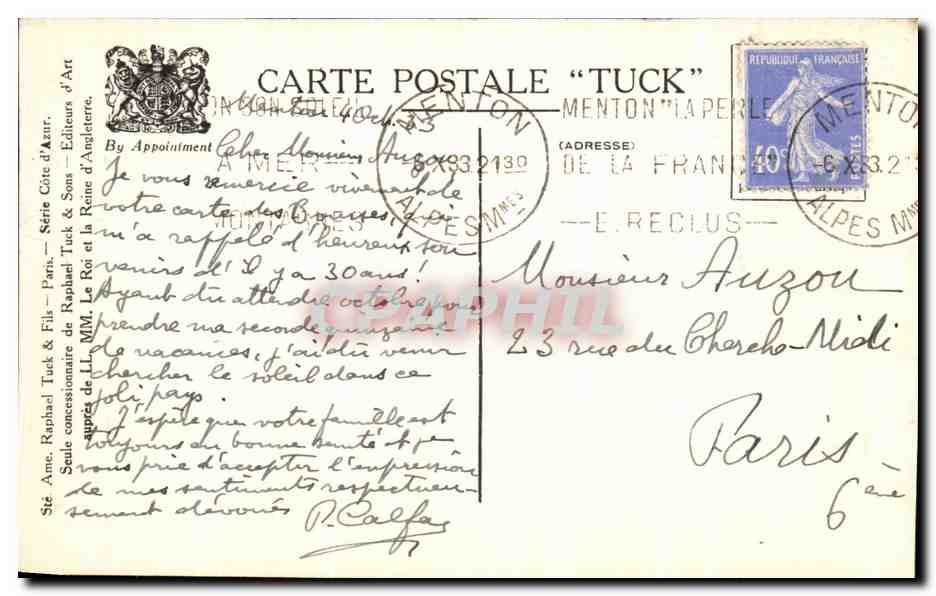 CARTE POSTALE "TUCK"
By Appointment
(ADRESSE)
Sté. Ame. Raphael Tuck & Fils — Paris. — Série Côte d'Azur.
Seule concessionnaire de Raphael Tuck & Sons — Editeurs d'Art
auprès de LL. MM. Le Roi et la Reine d'Angleterre.
Menton 4 Oct. 
Cher Monsieur Auzou
Je vous remercie vivement de
votre carte des qui
m'a rappelé d'heureux sou
venirs d'il y a 30 ans!
Ayant du attendre octobre pour
prendre ma seconde quinzaine
de vacances, j'ai dû venir
chercher le soleil dans ce
joli pays.
J'espère que votre famille est
toujours en bonne santé et je
vous prie d'accepter l'expression
de mes sentiments respectueu-
sement dévoués
P. Calfas
MENTON
6 X 33.21 30
ALPES Mmes
MENTON "LA PERLE
DE LA FRANCE"
—E. RECLUS—
REPUBLIQUE FRANÇAISE
40c
POSTES
MENTON
-6 X 33.2
ALPES Mmes
Monsieur Auzou
23 rue du Cherche-Midi
Paris
6ème
CPAPHIL